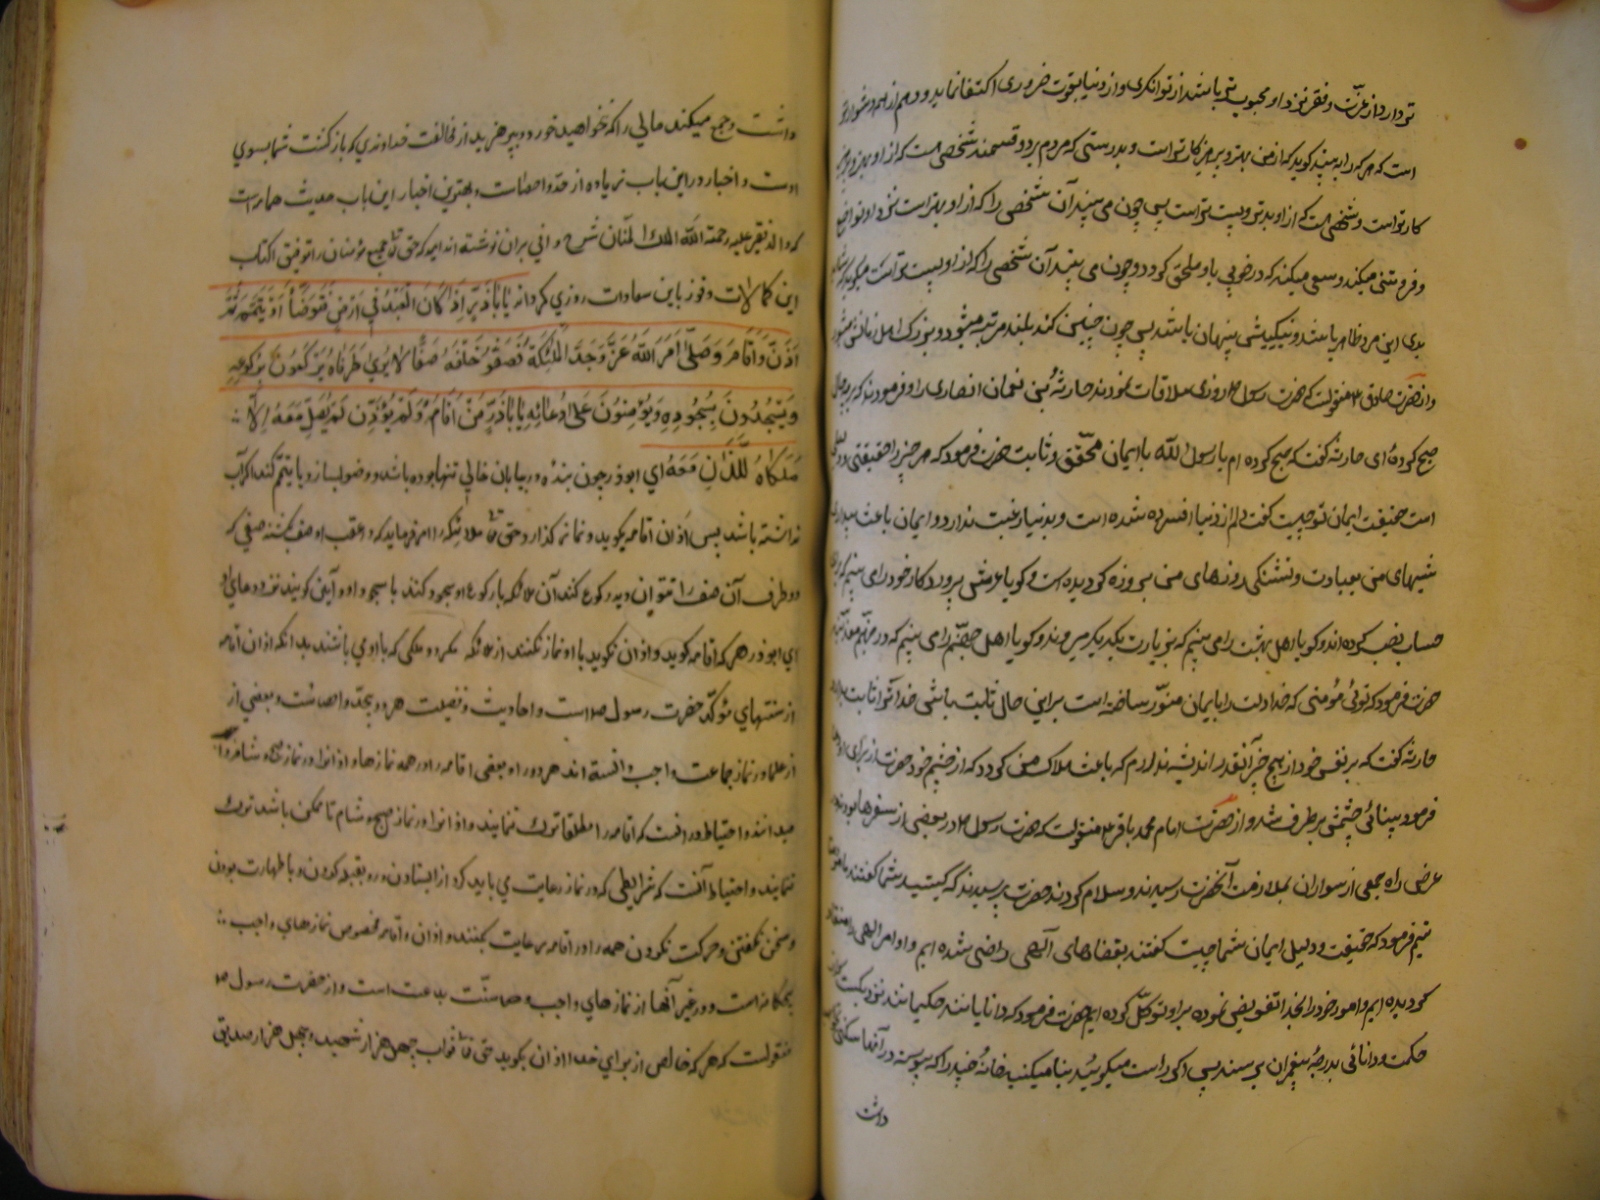 تر دارد از عزت و فقر نزد او محبوب تر باشد از توانگری و از دنیا بقوت ضروری اکتفا نماید و دهم از همه دشوارتر
است که هر که را به بیند گوید که از من بهتر و پرهیزکارتر است و بدرستی که مردم بر دو قسمند شخصی هست که از او بهتر و پرهیز
کارتر است و شخصی هست که از او بدتر و پست تر است پس چون می بیند آن شخصی را که از او بهتر است نزد او تواضع
و فروتنی میکند و سعی میکند که در خوبی باو ملحق گردد و چون می بیند آن شخصی را که از او پست تر است میگوید که شاید
بدی این مرد ظاهر باشد و نیکیش پنهان باشد پس چون چنین کند بلند مرتبه میشود و بزرگ اهل زمانش میشود
و از حضرت صادق ع منقولست که حضرت رسول ص روزی ملاقات نمودند حارثة بن نعمان انصاری را و فرمودند که بر چه حال
صبح کردهٔ ای حارثه گفت که صبح کرده ام یا رسول الله با ایمان محقق و ثابت حضرت فرمود که هر چیز را حقیقتی و دلیلی
است حقیقت ایمان تو چیست گفت دلم از دنیا افسرده شده است و بدنیا رغبت ندارد و ایمان باعث بیداری
شبهای من بعبادت و تشنگی روزهای من بروزه گردیده است و گویا عرش پروردگار خود را می بینم که برای
حساب نصب کرده اند و گویا اهل بهشت را می بینم که بزیارت یکدیگر میروند و گویا اهل جهنم را می بینم که در جهنم معذبند
حضرت فرمود که توئی مؤمنی که خدا دلت را بایمان منور ساخته است بر این حال ثابت باش خدا ترا ثابت بدارد
حارثه گفت که بر نفس خود از هیچ چیز آنقدر اندیشه ندارم که باعث هلاک من گردد که از چشم خود حضرت از برای او دعا
فرمود بینائی چشمش برطرف شد و از حضرت امام محمد باقر ع منقولست که حضرت رسول ص در بعضی از سفرها بودند
عرض راه جمعی از سواران بملازمت آنحضرت رسیدند و سلام کردند حضرت پرسیدند که کیستید شما گفتند ما مؤمنا
نیم فرمود که حقیقت و دلیل ایمان شما چیست گفتند بقضاهای آلهی راضی شده ایم و اوامر الهی را منقاد
گردیده ایم و امور خود را بخدا تفویض نموده بر او توکل کرده ایم حضرت فرمود که دانایانند حکیمانند نزدیکست که از
حکمت و دانائی بدرجهٔ پیغمبران برسند پس اگر راست میگوئید بنا میکنید خانهٔ چند را که پیوسته در آنها سکنی نخواهید
داشت
داشت و جمع میکنید مالی را که نخواهید خورد و بپرهیزید از مخالفت خداوندی که بازگشت شما بسوی
اوست و اخبار در این باب زیاده از حد و احصاست و بهترین اخبار این باب حدیث همام است
که والد فقیر علیه رحمة الله الملک المنان شرح وافی بر آن نوشته اند امید که حق تع جمیع مؤمنان را توفیق اکتساب
این کمالات و فوز باین سعادات روزی گرداند یا باذر اذا کان العبد فی ارض فتوضأ او یتیمم ثم
اذن و اقام و صلی امر الله عز و جل الملئکة فصفوا خلفه صفا لا یری طرفاه یرکعون برکوعه
و یسجدون بسجوده و یؤمنون علی دعائه یا باذر من اقام و لم یؤذن لم یصل معه الا
ملکاه اللذان معه ای ابوذر چون بنده در بیابان خالی تنها بوده باشد و وضو بسازد یا تیمم کند اگر آب
نداشته باشد پس اذان اقامه بگوید و نماز گذارد حق تع ملائکه را امر فرماید که در عقب او صف کشند صفی که
دو طرف آن صف را نتوان دید رکوع کنند آن ملائکه با رکوع او سجود کنند با سجود او و آمین گویند نزد دعای او
ای ابوذر هر که اقامه گوید و اذان نگوید با او نماز نکنند از ملائکه مگر دو ملکی که با او می باشند بدانکه اذان اقامه
از سنتهای مؤکد حضرت رسول ص است و احادیث در فضیلت هر دو بیحد و احصاست و بعضی از
از علما در نماز جماعت واجب دانسته اند هر دو را و بعضی اقامه را در همه نمازها و اذانرا در نماز صبح و شام واجب
میدانند و احتیاط در آنست که اقامه را مطلقا ترک ننمایند و اذانرا در نماز صبح و شام تا ممکن باشد ترک
ننمایند و احتیاط آنست که شرایطی که در نماز رعایت می باید کرد از ایستادن و رو بقبله کردن و با طهارت بودن
و سخن نگفتن و حرکت نکردن همه را در اقامه رعایت بکنند و اذان و اقامه مخصوص نمازهای واجب
پنجگانه است و در غیر آنها از نمازهای واجب و سنت بدعت است و از حضرت رسول ص
منقولست که هر که خالص از برای خدا اذان بگوید حق تع ثواب چهل هزار شهید و چهل هزار صدیق